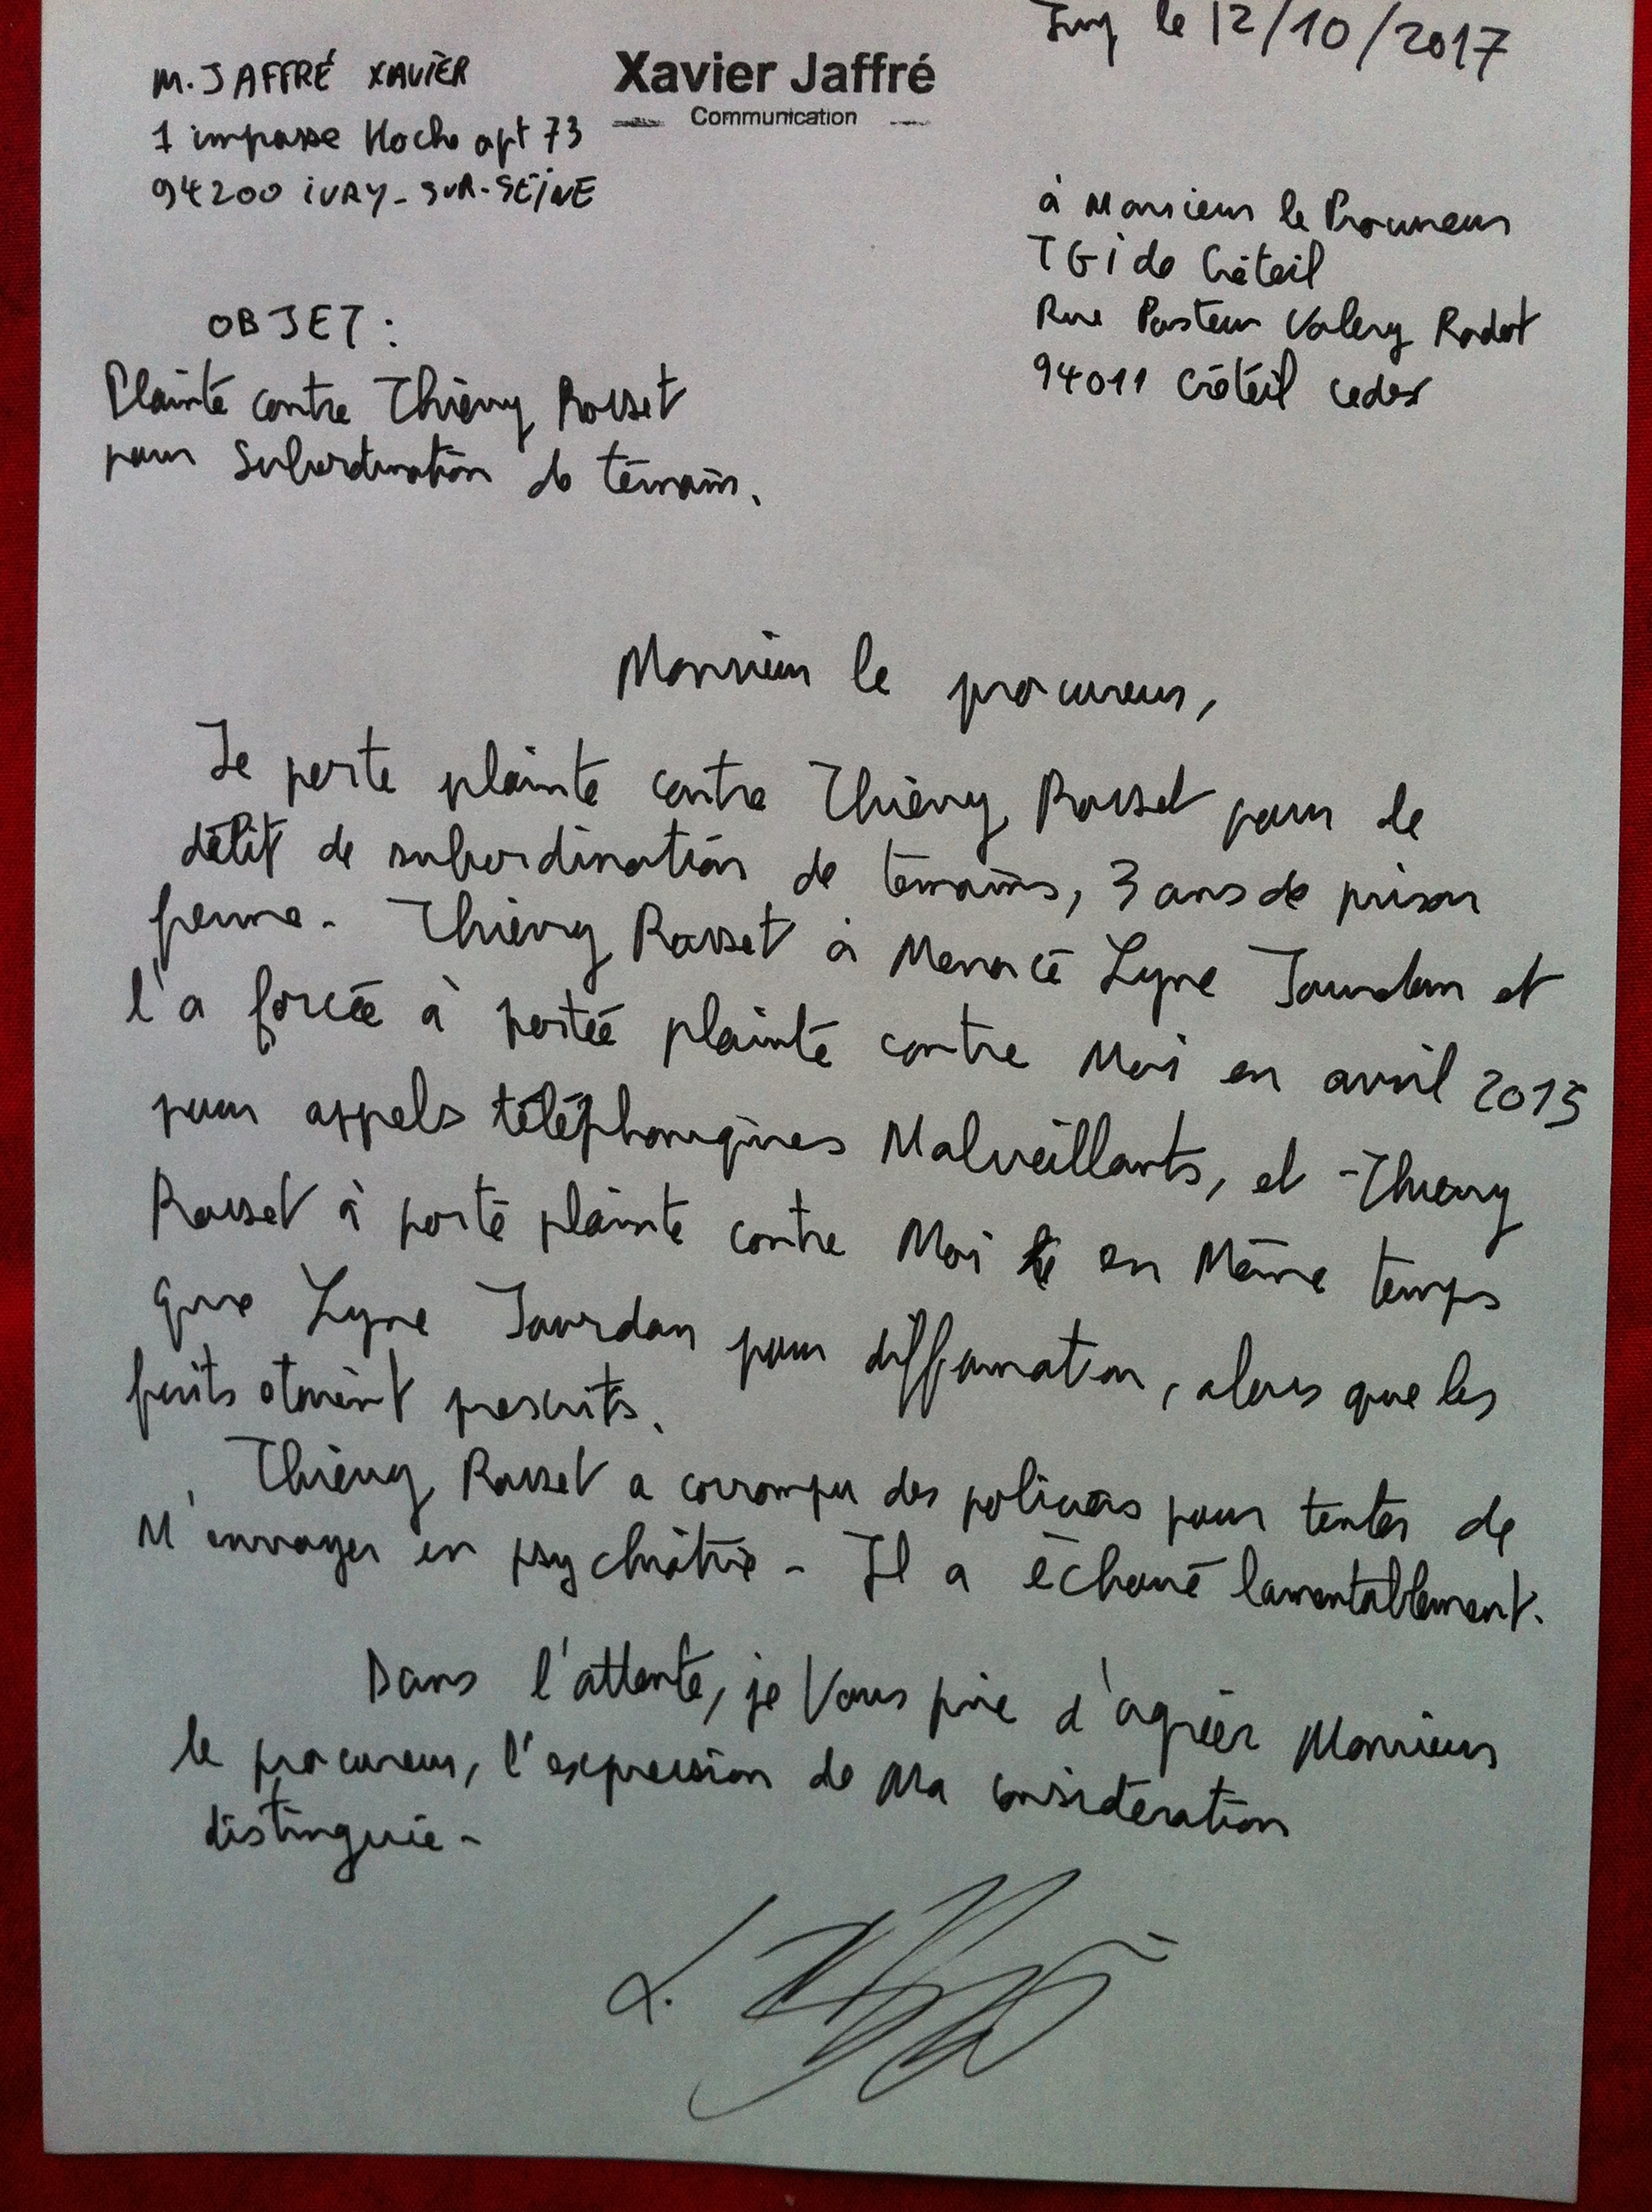 Ivry le 12/10/2017
M. JAFFRÉ XAVIER
Xavier Jaffré
Communication
1 impasse Hoche apt 73
94200 IVRY-SUR-SEINE
à Monsieur le Procureur
TGI de Créteil
Rue Pasteur Valery Radot
94011 Créteil cedex
OBJET :
Plainte contre Thierry Rosset
pour Subordination de témoin.
Monsieur le procureur,
Je porte plainte contre Thierry Rosset pour le
délit de subordination de témoins, 3 ans de prison
ferme - Thierry Rosset à Menacé Lyne Jourdan et
l'a forcée à portée plainte contre Moi en avril 2015
pour appels téléphoniques Malveillants, et Thierry
Rosset à porté plainte contre Moi en Même temps
que Lyne Jourdan pour diffamation, alors que les
faits étaient prescrits.
Thierry Rosset a corrompu des policiers pour tenter de
M'envoyer en psychiâtrie - Il a échoué lamentablement.
Dans l'attente, je Vous prie d'agréer Monsieur
le procureur, l'expression de Ma considération
distinguée -